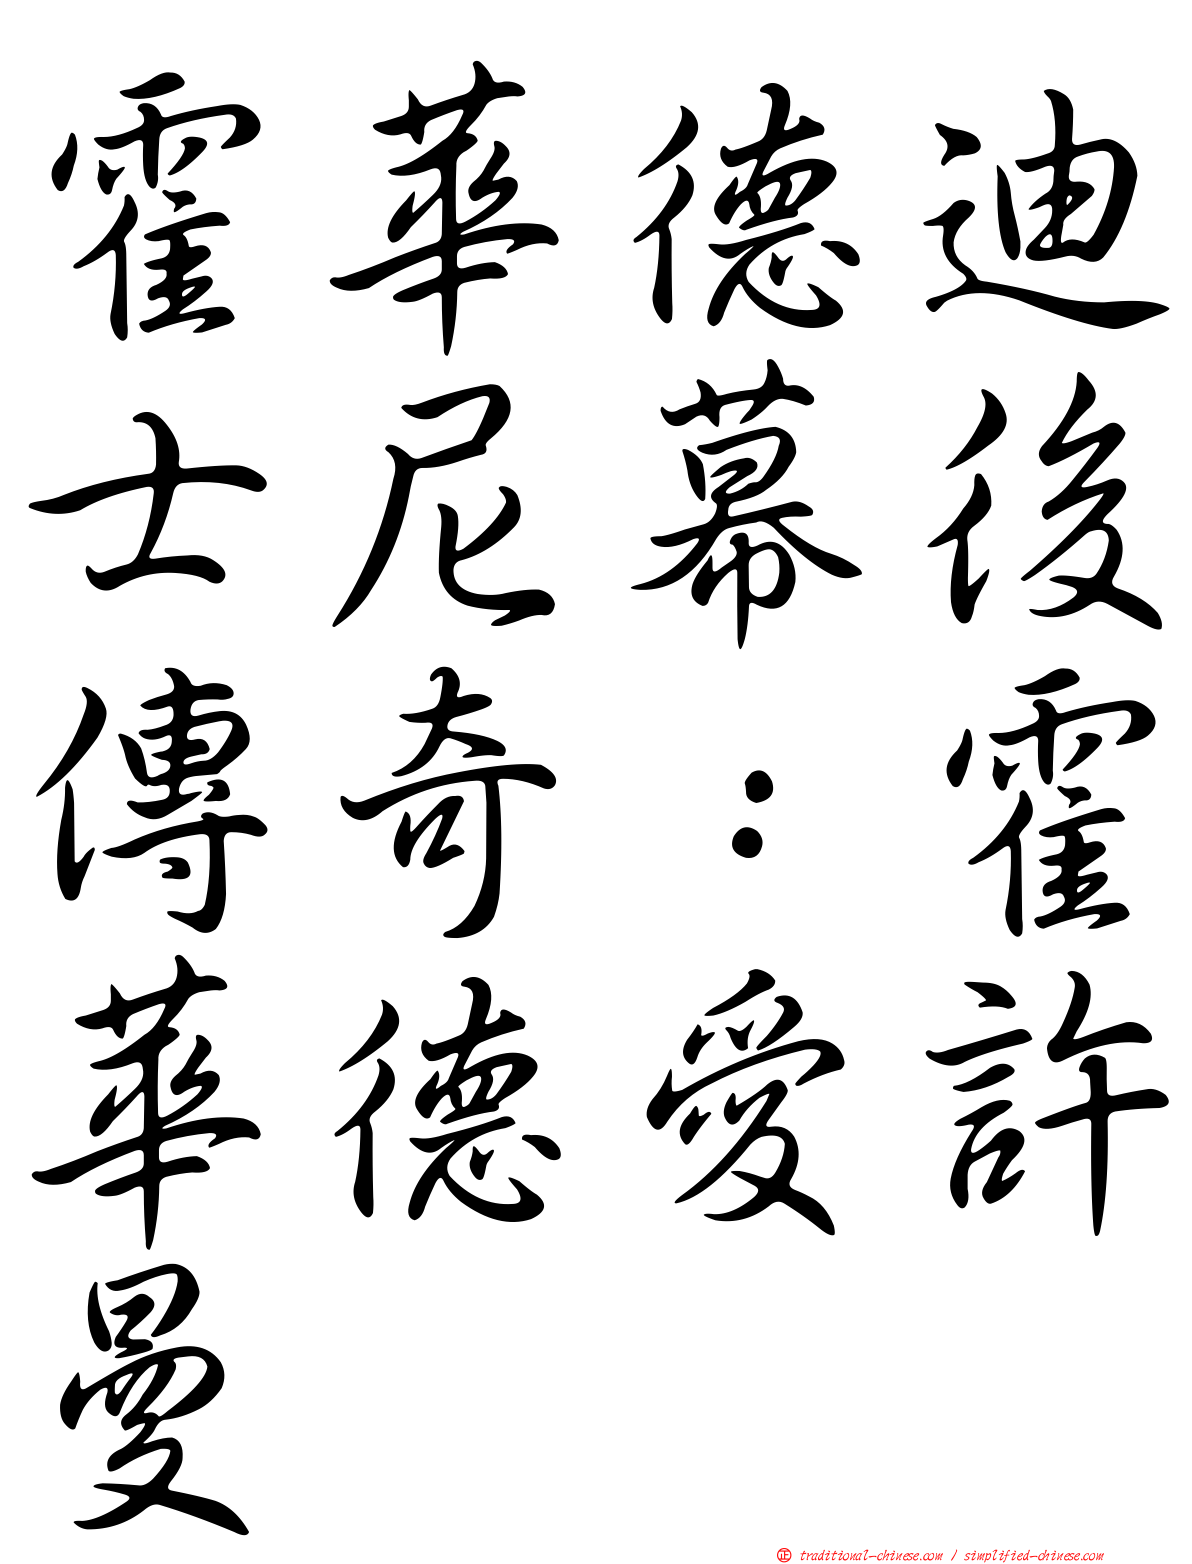 霍華德迪
士尼幕後
傳奇：霍
華德愛許
曼
㊣ traditional-chinese.com / simplified-chinese.com